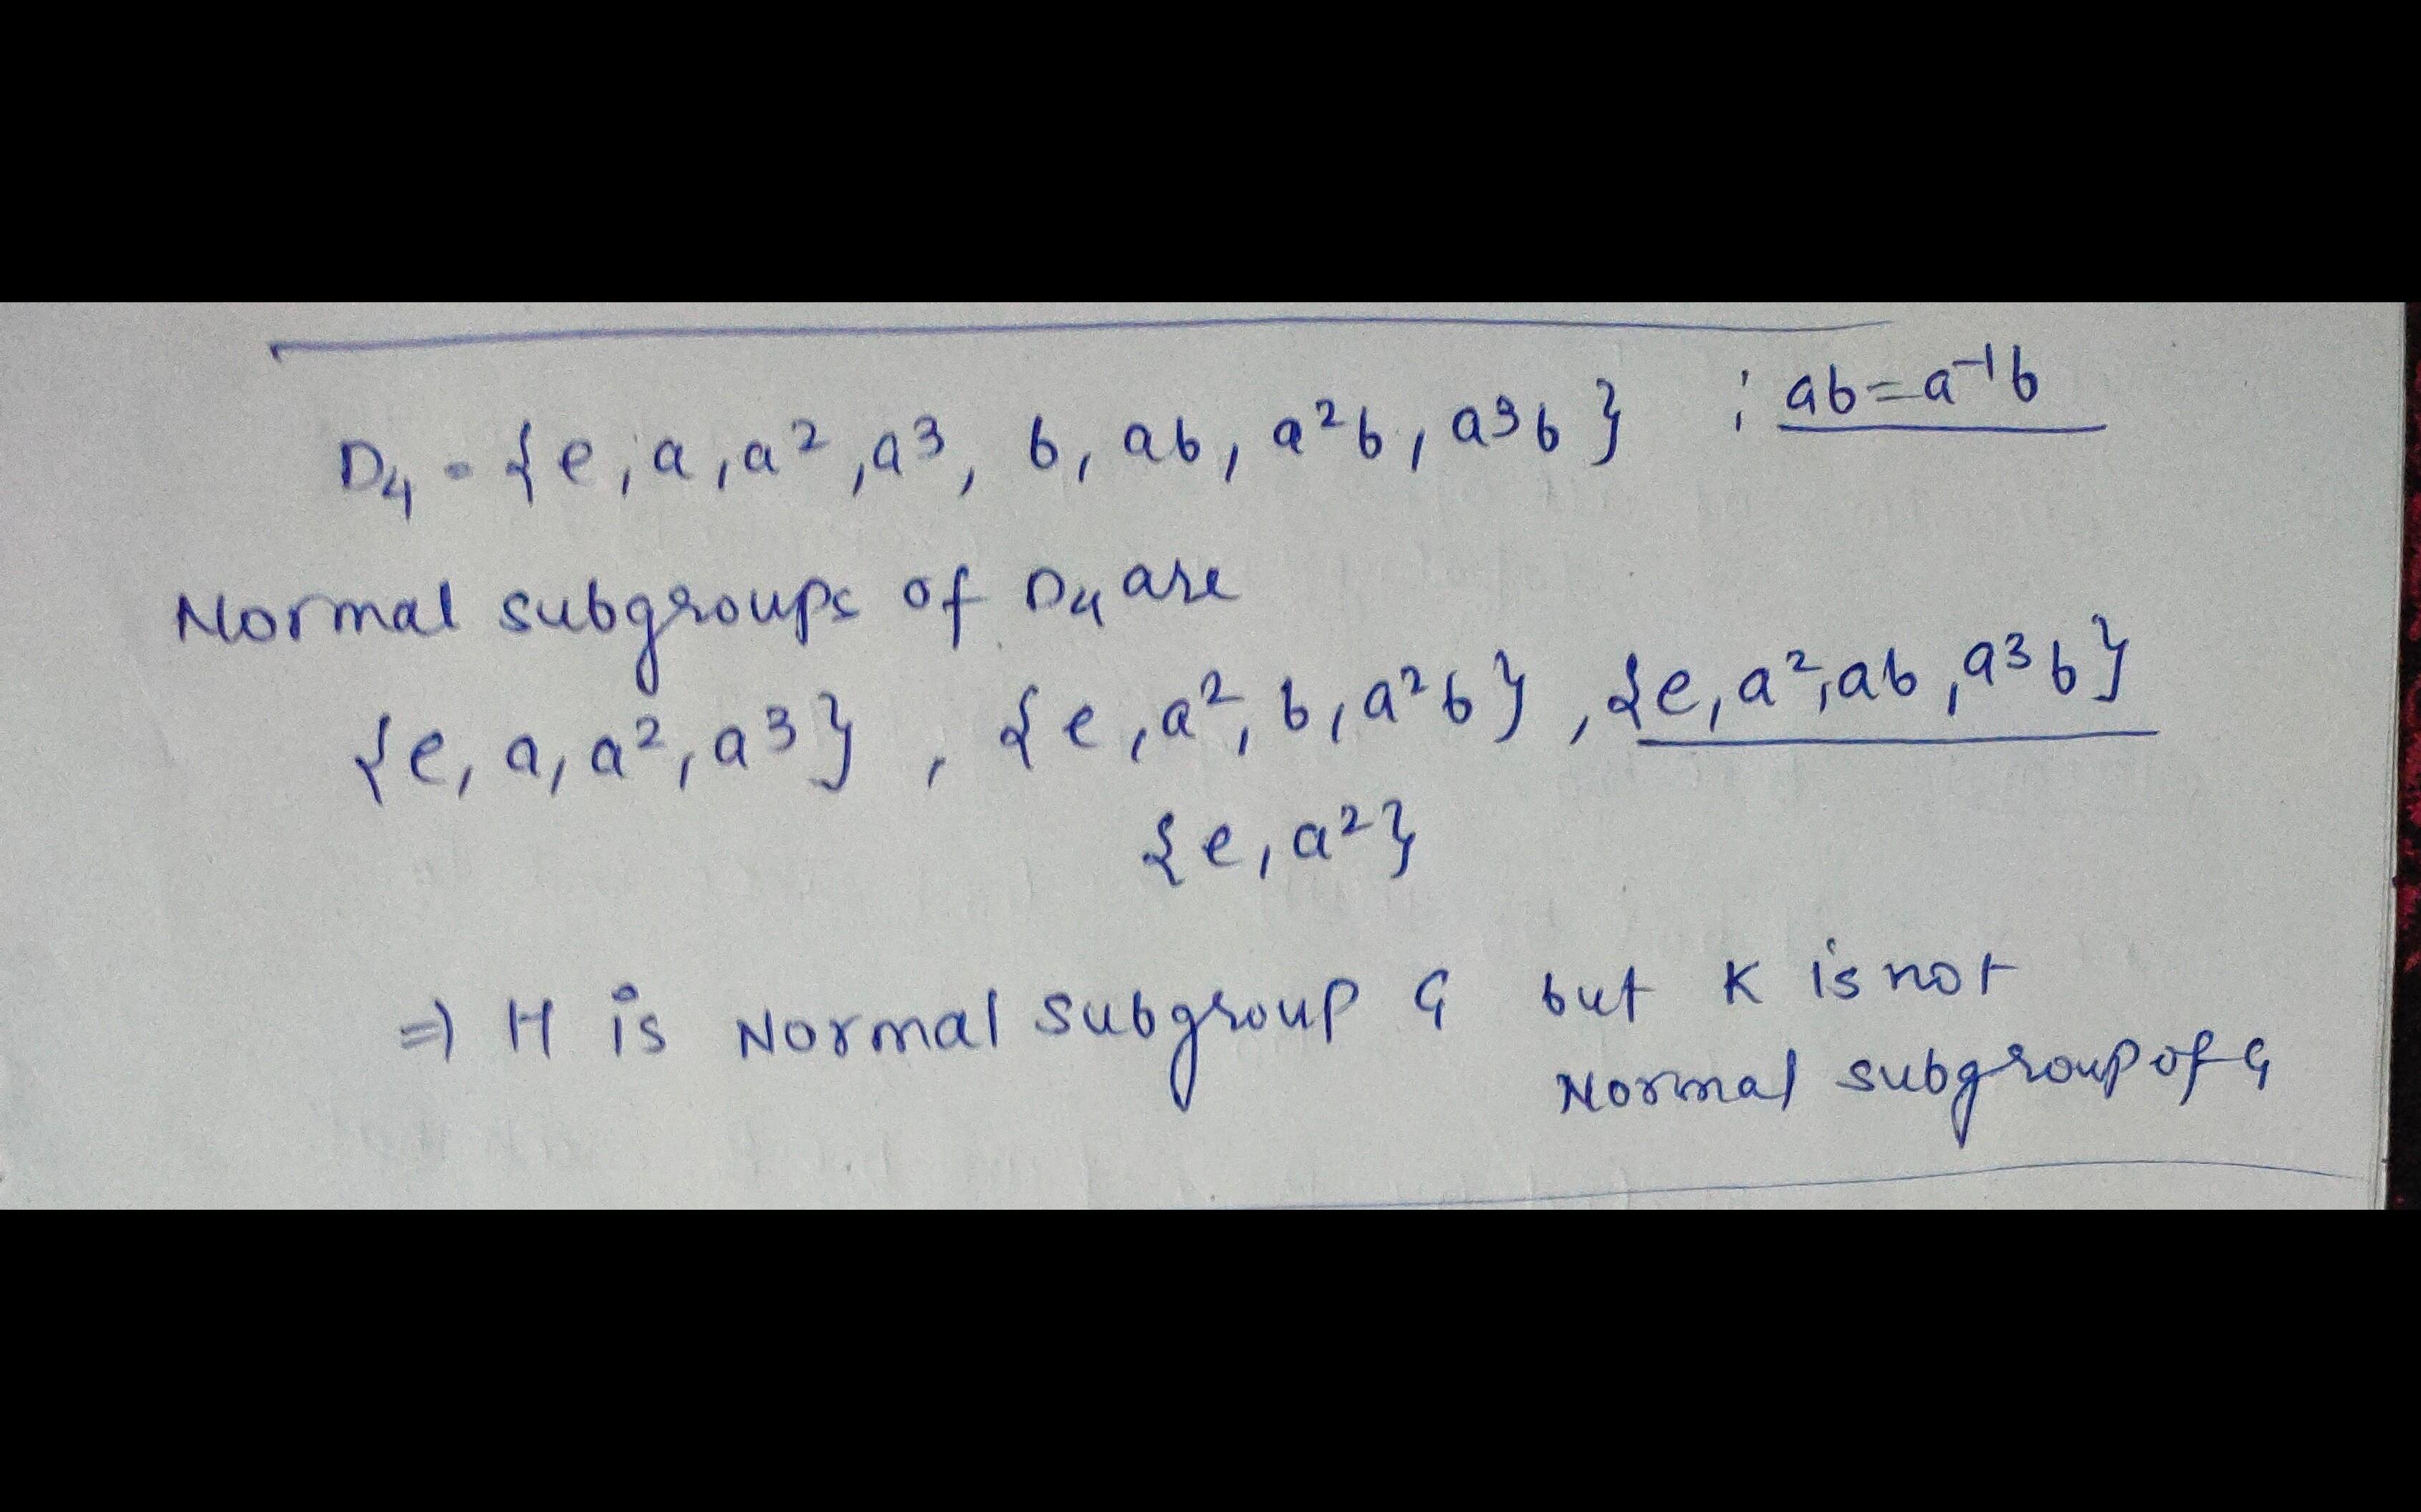 D₄ = {e, a, a², a³, b, ab, a²b, a³b} ; ab = a⁻¹b
Normal subgroups of D₄ are
{e, a, a², a³}, {e, a², b, a²b}, {e, a², ab, a³b}
{e, a²}
⇒ H is Normal subgroup G but K is not
Normal subgroup of G